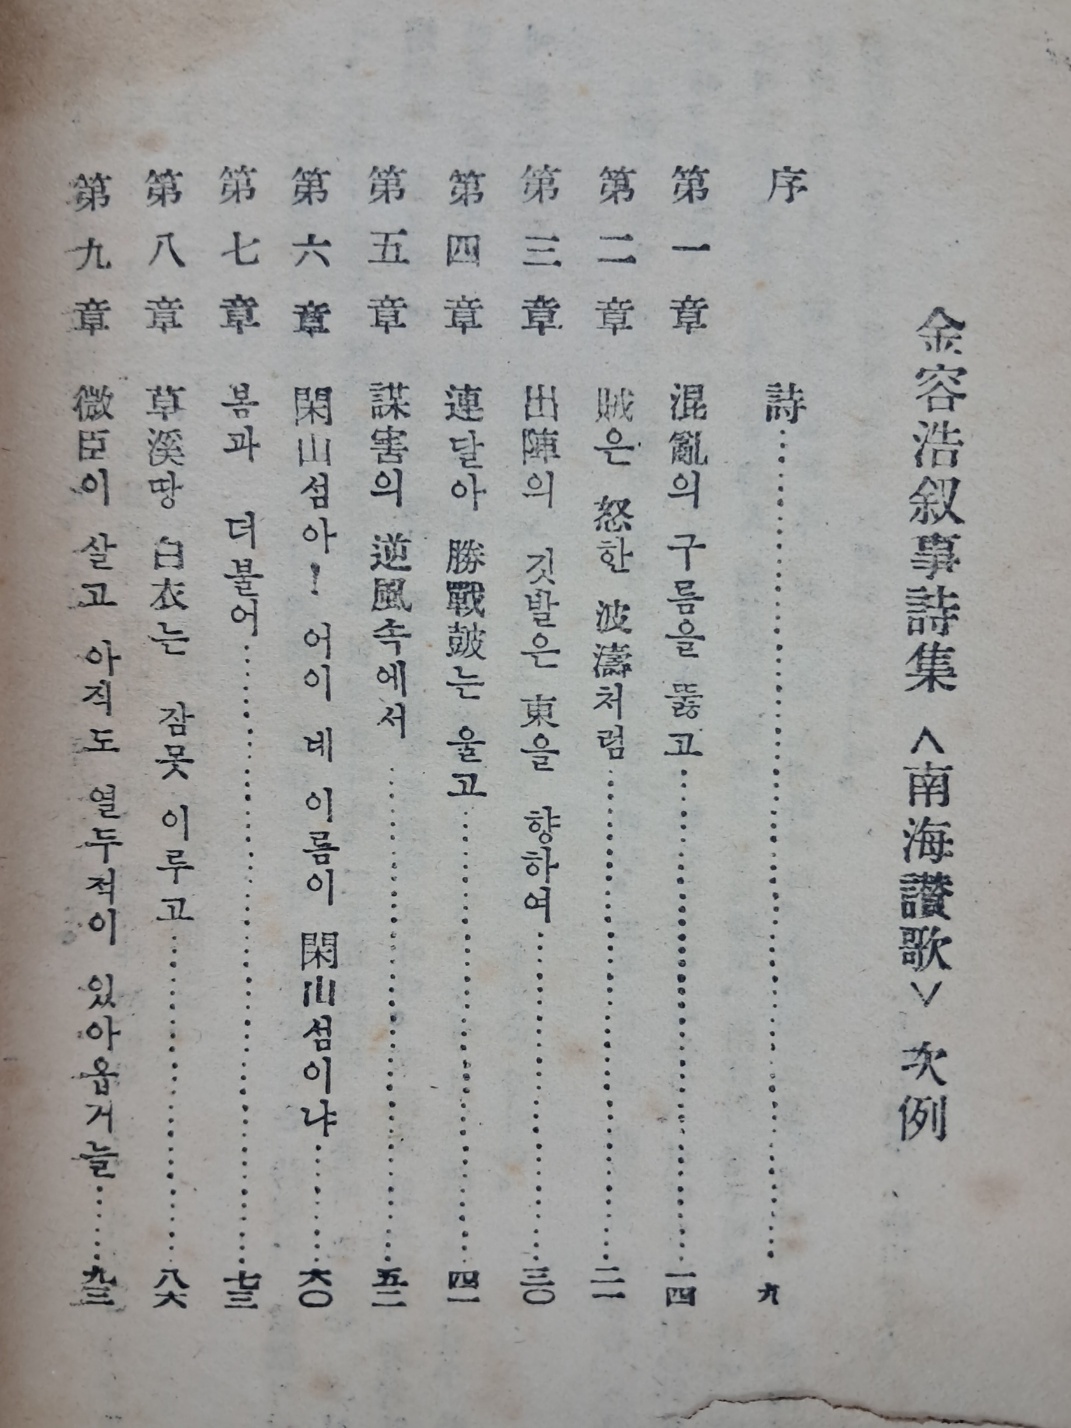 金容浩叙事詩集 <南海讃歌> 次例
序 詩……九
第一章 混亂의 구름을 뚫고……一四
第二章 賊은 怒한 波濤처럼……二一
第三章 出陣의 깃발은 東을 향하여……三〇
第四章 連달아 勝戰鼓는 울고……四一
第五章 謀害의 逆風속에서……五二
第六章 閑山섬아! 어이 네 이름이 閑山섬이냐……六〇
第七章 봄과 더불어……七三
第八章 草溪땅 白衣는 잠못 이루고……八六
第九章 微臣이 살고 아직도 열두척이 있아옵거늘……九三